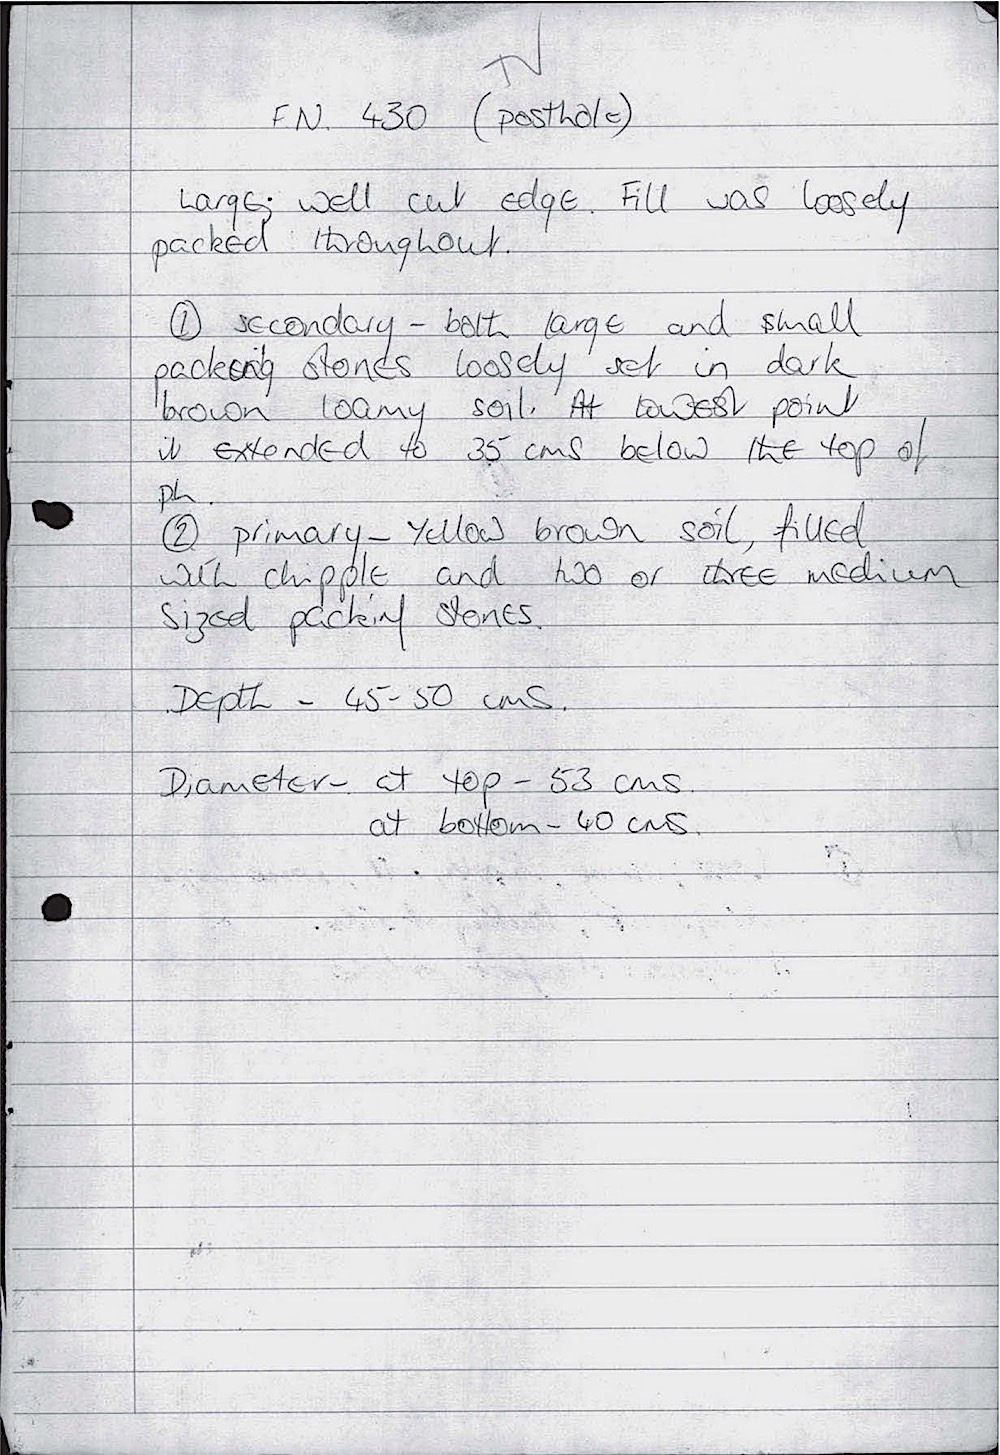 F.N. 430 (posthole)
Large; well cut edge. Fill was loosely
packed throughout.
① secondary - both large and small
packing stones loosely set in dark
brown loamy soil. At lowest point
it extended to 35 cms below the top of
ph.
② primary - Yellow brown soil, filled
with chipple and two or three medium
sized packing stones.
Depth - 45-50 cms.
Diameter - at top - 53 cms.
at bottom - 40 cms.